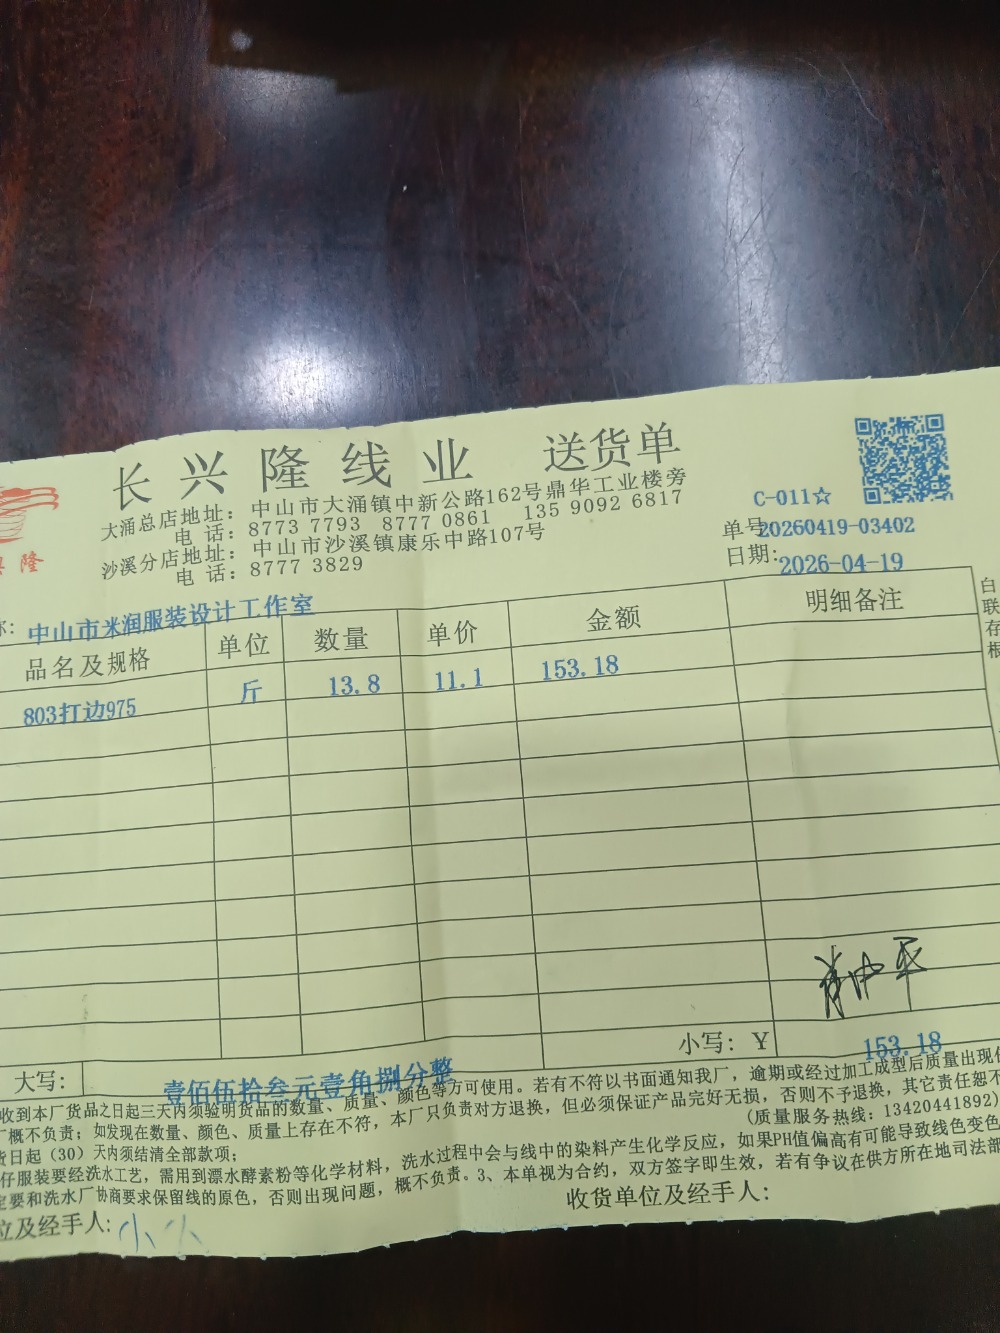 长兴隆线业 送货单
大涌总店地址: 中山市大涌镇中新公路162号鼎华工业楼旁
电 话: 8773 7793 8777 0861 135 9092 6817
沙溪分店地址: 中山市沙溪镇康乐中路107号
电 话: 8777 3829
隆
C-011☆
单号: 20260419-03402
日期: 2026-04-19
称: 中山市米润服装设计工作室
品名及规格 单位 数量 单价 金额 明细备注
803打边975 斤 13.8 11.1 153.18
白
联
存
根
小写: Y 153.18
大写: 壹佰伍拾叁元壹角捌分整
收到本厂货品之日起三天内须验明货品的数量、质量、颜色等方可使用。若有不符以书面通知我厂, 逾期或经过加工成型后质量出现
厂概不负责; 如发现在数量、颜色、质量上存在不符, 本厂只负责对方退换, 但必须保证产品完好无损, 否则不予退换, 其它责任恕不
货日起 (30) 天内须结清全部款项; (质量服务热线: 13420441892)
仔服装要经洗水工艺, 需用到漂水酵素粉等化学材料, 洗水过程中会与线中的染料产生化学反应, 如果PH值偏高有可能导致线色变色
定要和洗水厂协商要求保留线的原色, 否则出现问题, 概不负责。3、本单视为合约, 双方签字即生效, 若有争议在供方所在地司法部
位及经手人: 收货单位及经手人: